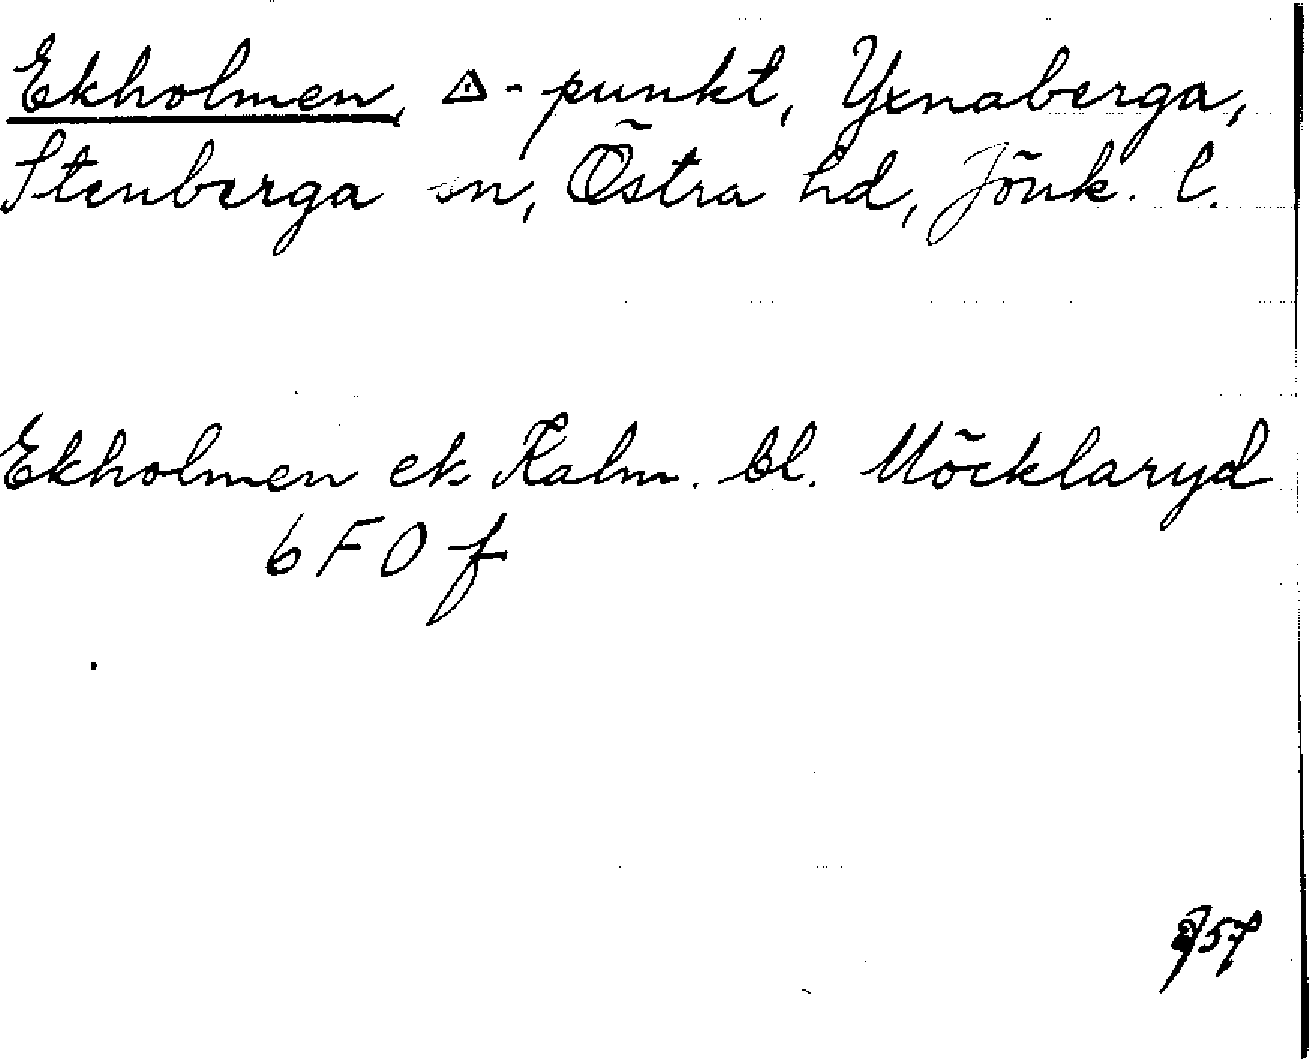 Ekholmen, △-punkt, Yxnaberga,
Stenberga sn, Östra hd, Jönk. l.
Ekholmen ek Kalm. bl. Möcklaryd
6 F 0 f
57